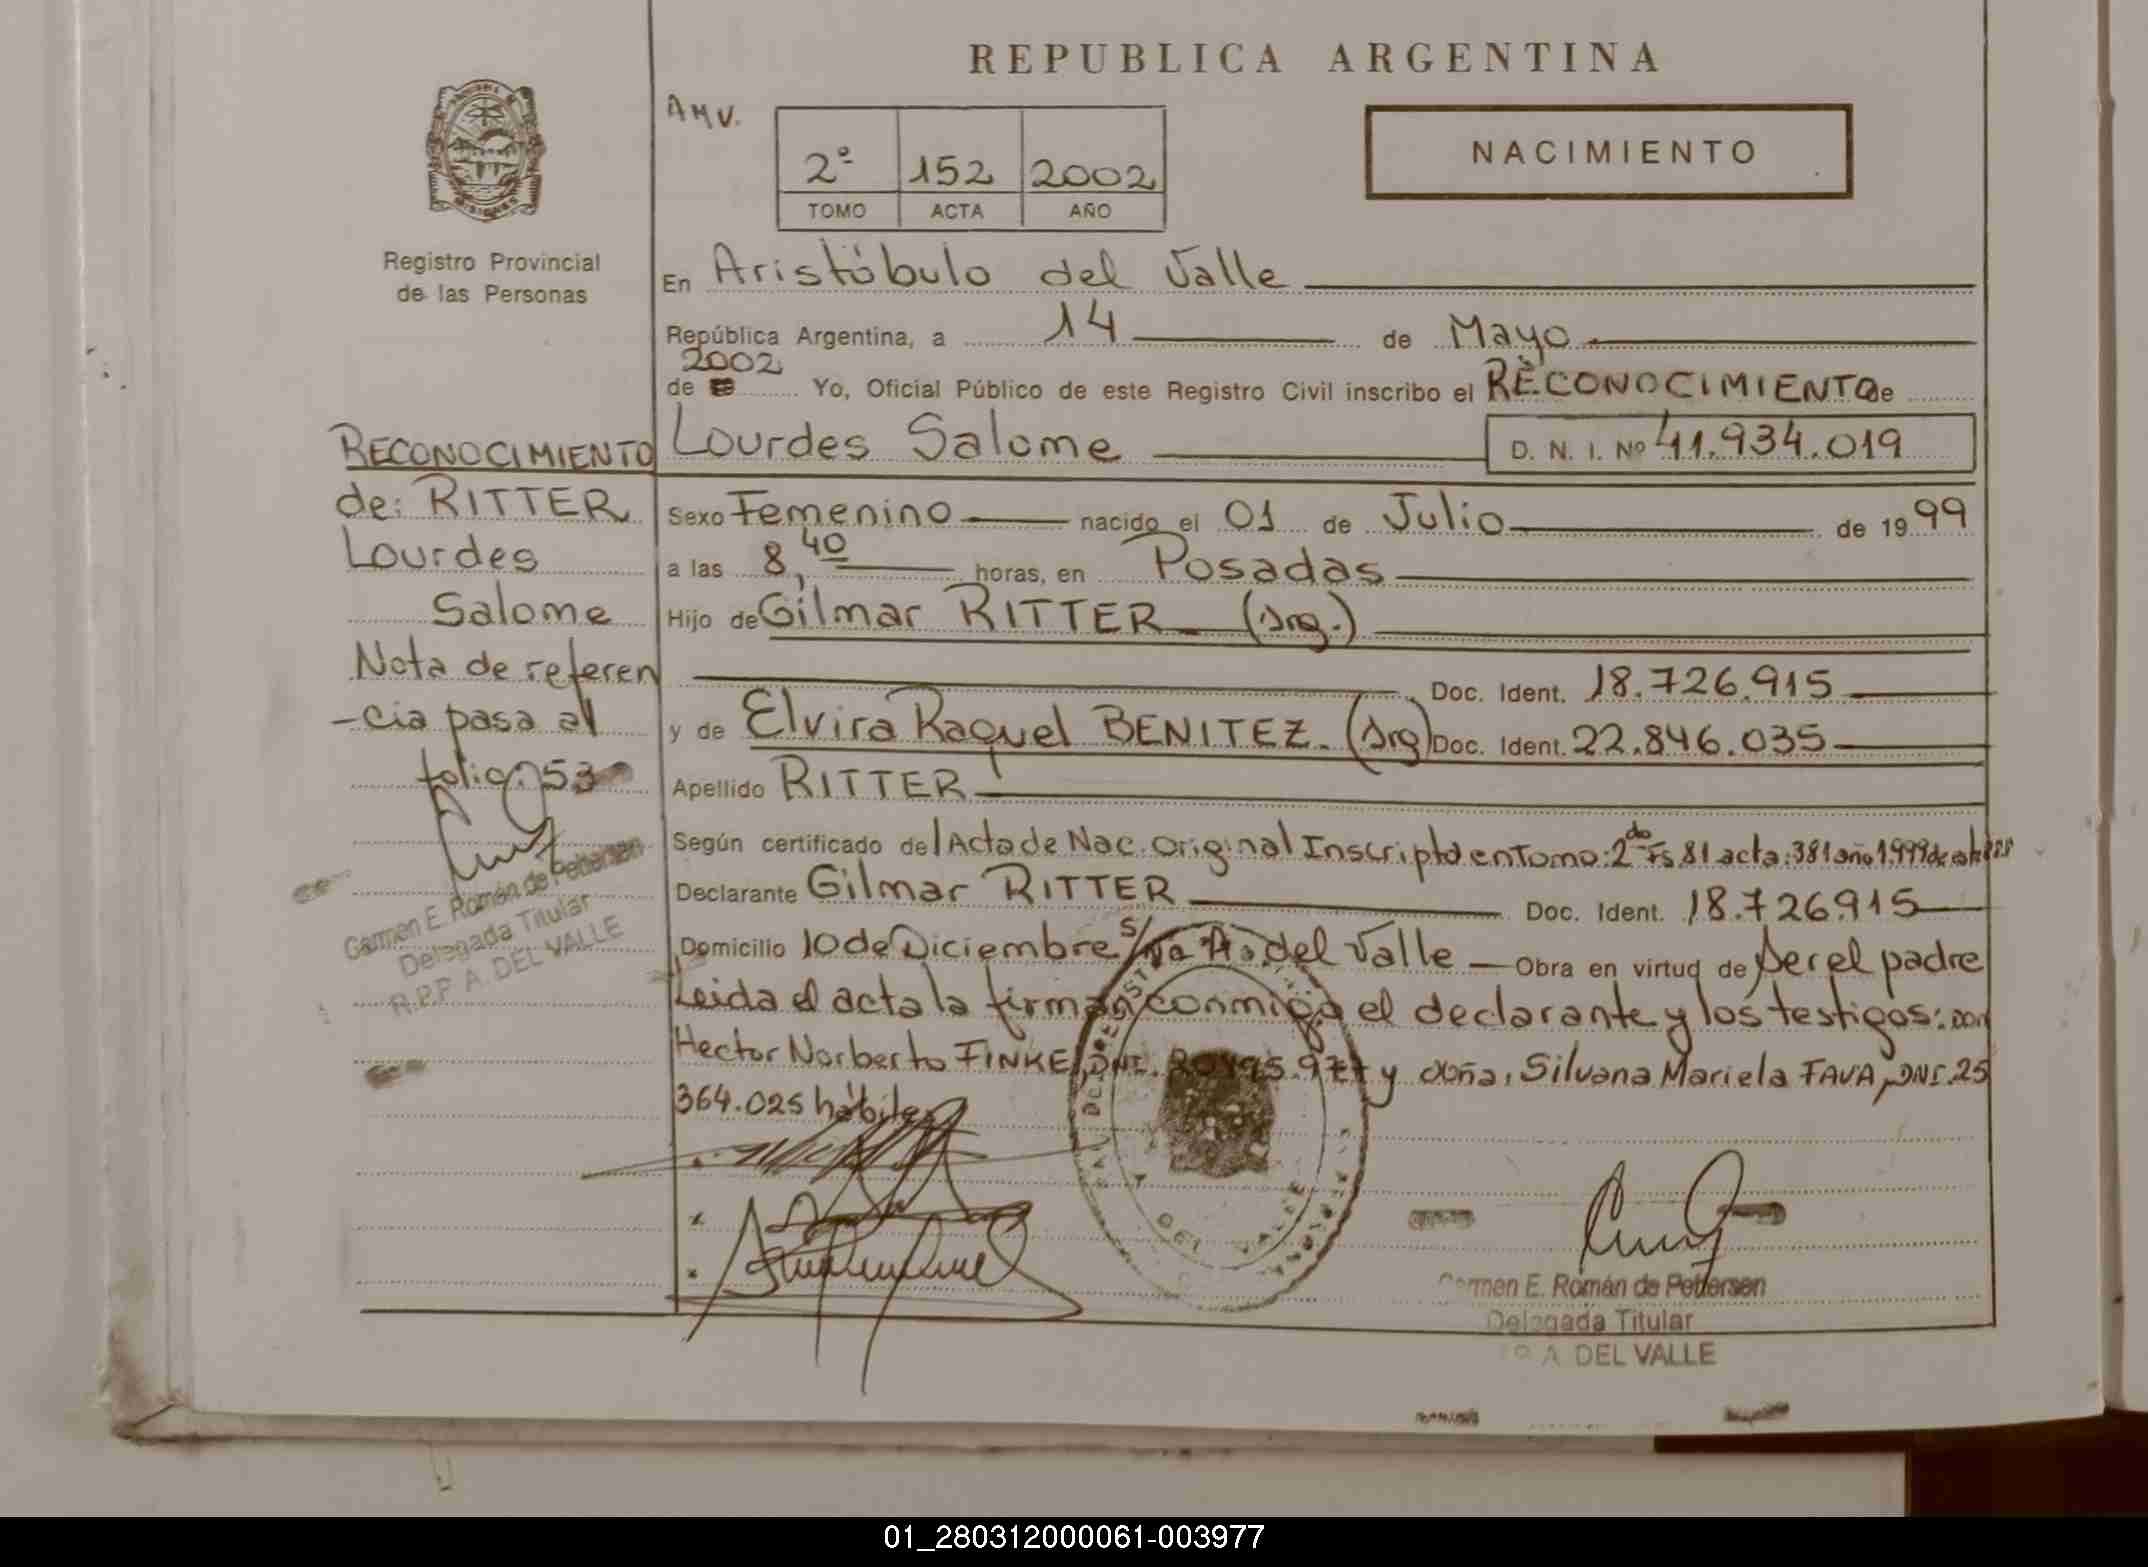 REPUBLICA ARGENTINA
AMV.
2º 152 2002
TOMO ACTA AÑO
NACIMIENTO
Registro Provincial
de las Personas
En Aristóbulo del Valle
República Argentina, a 14 de Mayo
2002
de Yo, Oficial Público de este Registro Civil inscribo el RECONOCIMIENTO de
Lourdes Salome D. N. I. Nº 41.934.019
Sexo Femenino nacido el 01 de Julio de 1999
a las 8,40 horas, en Posadas
Hijo de Gilmar RITTER (Arg.)
Doc. Ident. 18.726.915
y de Elvira Raquel BENITEZ. (Arg) Doc. Ident. 22.846.035
Apellido RITTER
Según certificado del Acta de Nac. Original Inscripta en Tomo: 2do Fs 81 acta: 381 año 1.999 de
Declarante Gilmar RITTER Doc. Ident. 18.726.915
Domicilio 10 de Diciembre s/Nº A. del Valle Obra en virtud de ser el padre
Leida el acta la firman conmigo el declarante y los testigos: don
Hector Norberto FINKE, DNI. y doña, Silvana Mariela FAVA, DNI. 25
364.025 hábiles
RECONOCIMIENTO
de: RITTER
Lourdes
Salome
Nota de referen
-cia pasa al
folio: 53
Carmen E. Román de Pettersen
Delegada Titular
R.P.P A. DEL VALLE
DEL VALLE
Carmen E. Román de Pettersen
Delegada Titular
P A. DEL VALLE
01_280312000061-003977